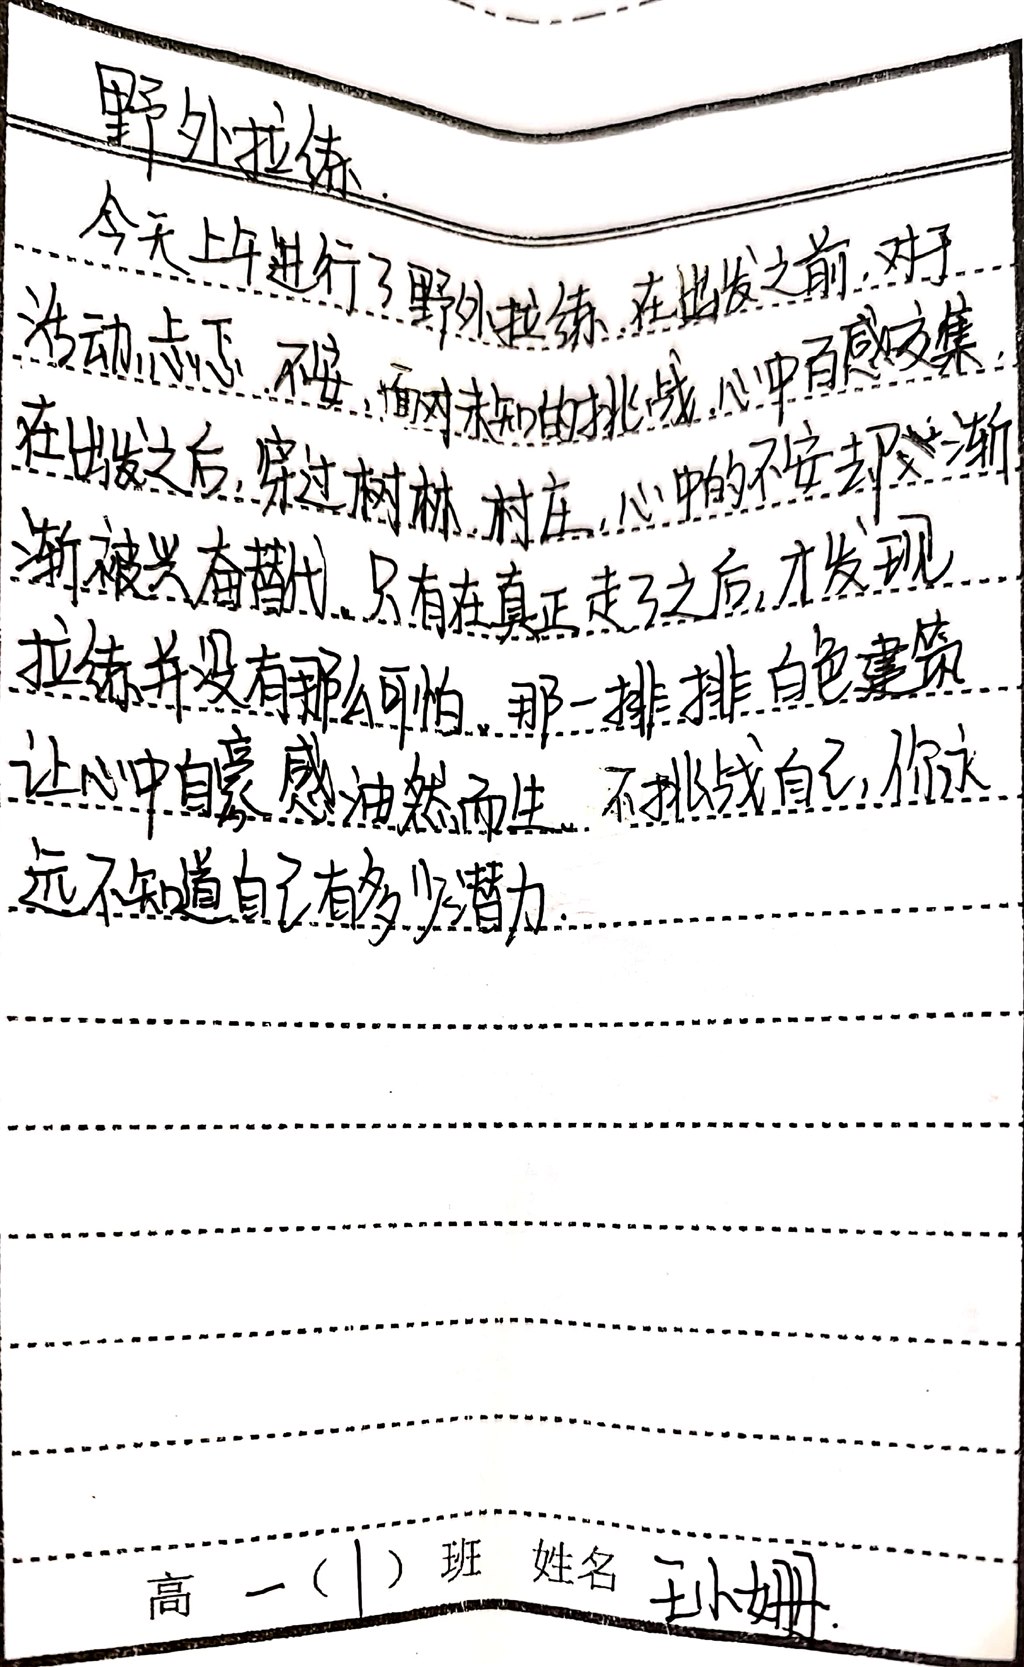 野外拉练.
今天上午进行了野外拉练.在出发之前,对于
活动忐忑不安,面对未知的挑战,心中百感交集.
在出发之后,穿过树林.村庄,心中的不安却渐
渐被兴奋替代.只有在真正走了之后,才发现
拉练并没有那么可怕.那一排排白色建筑
让心中自豪感油然而生.不挑战自己,你永
远不知道自己有多少潜力.
高一(1)班 姓名 王小姗.